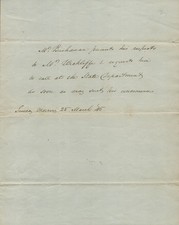 Mr. Buchanan presents his respects
to Mr. Wickliffe & requests him
to call at the State Department
as soon as may suit his convenience.
26 March